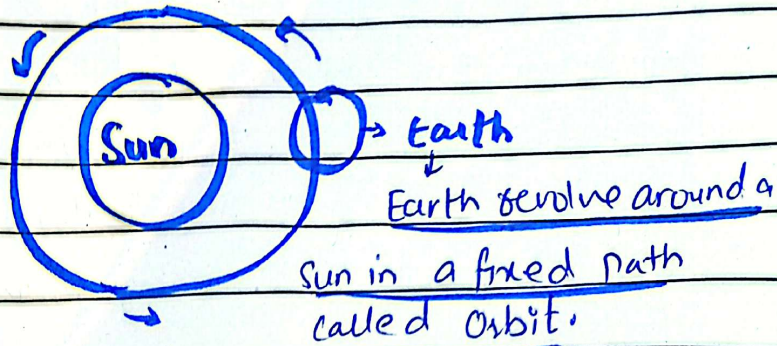 Sun
→ Earth
Earth revolve around a
Sun in a fixed path
called Orbit.